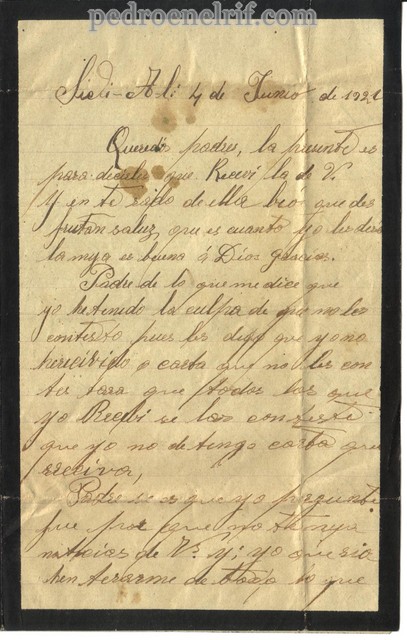 pedroenelrif.com
Sidi-Ali 4 de Junio de 1921
Querido padres, la presente es
para decirles que Recivi la de V.
Y en te rado de ella beo que des
frutan saluz, que es cuanto yo les deseo
la mya es buena á Dios gracias.
Padre de lo que me dice que
yo he tenido la culpa de que no les
contesto pues les digo que yo no
he recivido o carta que no les con
tes tara que todas las que
yo Recivi se las conteste
que yo no de tengo carta que
reciva,
Padre se es que yo pregunte
fue por que no tenya
noticias de Vs. y, yo queria
hen terarme de todo lo que
pedroenelrif.com